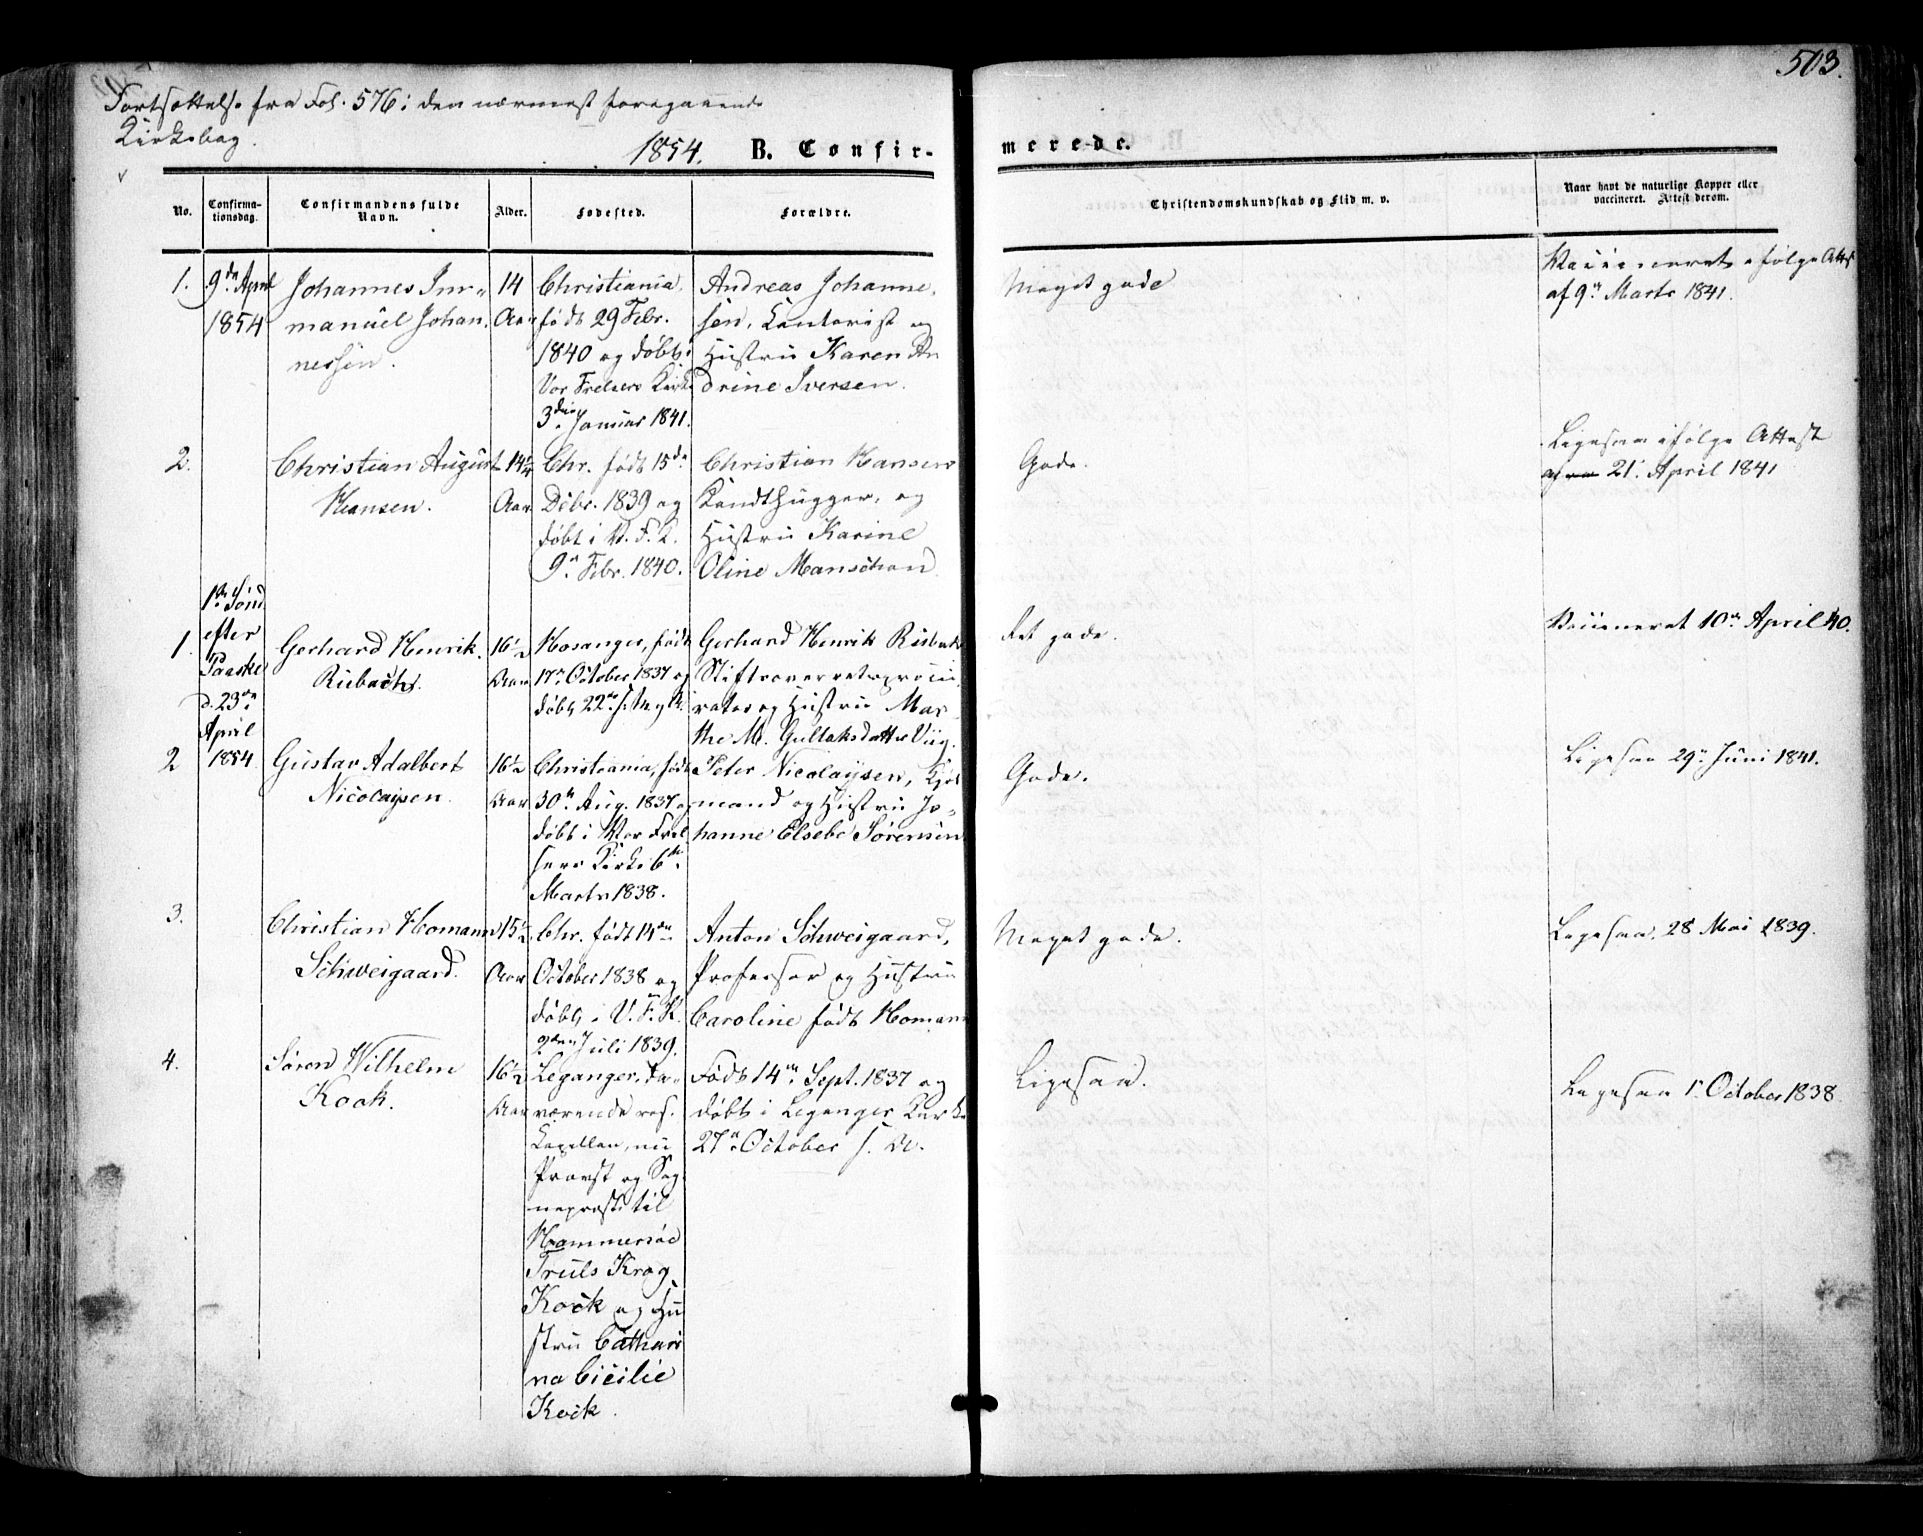 503.
Fortsættelse fra Fol. 576 i den nærmest foregaaende
Kirkebog.
1854. B. Confirmerede.
No. Confirmationsdag. Confirmandens fulde Navn. Alder. Fødested. Forældre. Christendomskundskab og Flid m. v. Naar havt de naturlige Kopper eller vaccineret. Attest derom.
1. 9de April 1854
Johannes Im-
manuel Johan
nessen.
14
Aar
Christiania,
født 29 Febr.
1840 og døbt i
Vor Frelsers Kirke
3die Januar 1841.
Andreas Johanne-
sen, Contorist og
Hustru Karen An
drine Iversen.
Meget gode
Vaccineret ifølge Attest
af 9n Marts 1841.
2.
Christian August
Hansen.
14 1/4
Aar
Chr. født 15de
Decbr. 1839 og
døbt i V. F. K.
9n Febr. 1840.
Christian Hansen
Kandthugger, og
Hustru Karine
Oline
Gode.
Ligesaa ifølge Attest
21. April 1841
1ste Sönd
efter
Paaske
d. 23de
April
1854.
1.
Gerhard Henrik
Risbach.
16 1/2
Aar
Hosanger, født
17n October 1837 og
døbt 22de
Gerhard Henrik Risbach
Stiftsoverretsprocu
rator og Hustru Mar
the M. Gullaksdatter Viig.
Ret gode.
Vaccineret 10n April 40.
2
Gustav Adalbert
Nicolaysen.
16 1/2
Aar
Christiania, født
30n Aug. 1837 og
døbt i Vor Frel
sers Kirke 6te
Marts 1838.
Peter Nicolaysen, Kjøb
mand og Hustru Jo-
hanne Elsebe Sørensen
Gode.
Ligesaa 29n Juni 1841.
3.
Christian Homann
Schweigaard.
15 1/2
Aar
Chr. født 14de
October 1838 og
døbt i V. F. K.
2den Juli 1839.
Anton Schweigaard,
Professor og Hustru
Caroline født Homann
Meget gode.
Ligesaa 28 Mai 1839.
4.
Søren Wilhelm
Koch.
16 1/2
Aar
Leganger, da-
værende res.
Capellan, nu
Provst og Sog
nepræst til
Hammersöe
Truls Krog
Kock og Hu
stru Cathari
na Cicilie
Kock.
Født 14n Sept. 1837 og
døbt i Leganger Kirke
27n October s. A.
Ligesaa.
Ligesaa 1n October 1838.